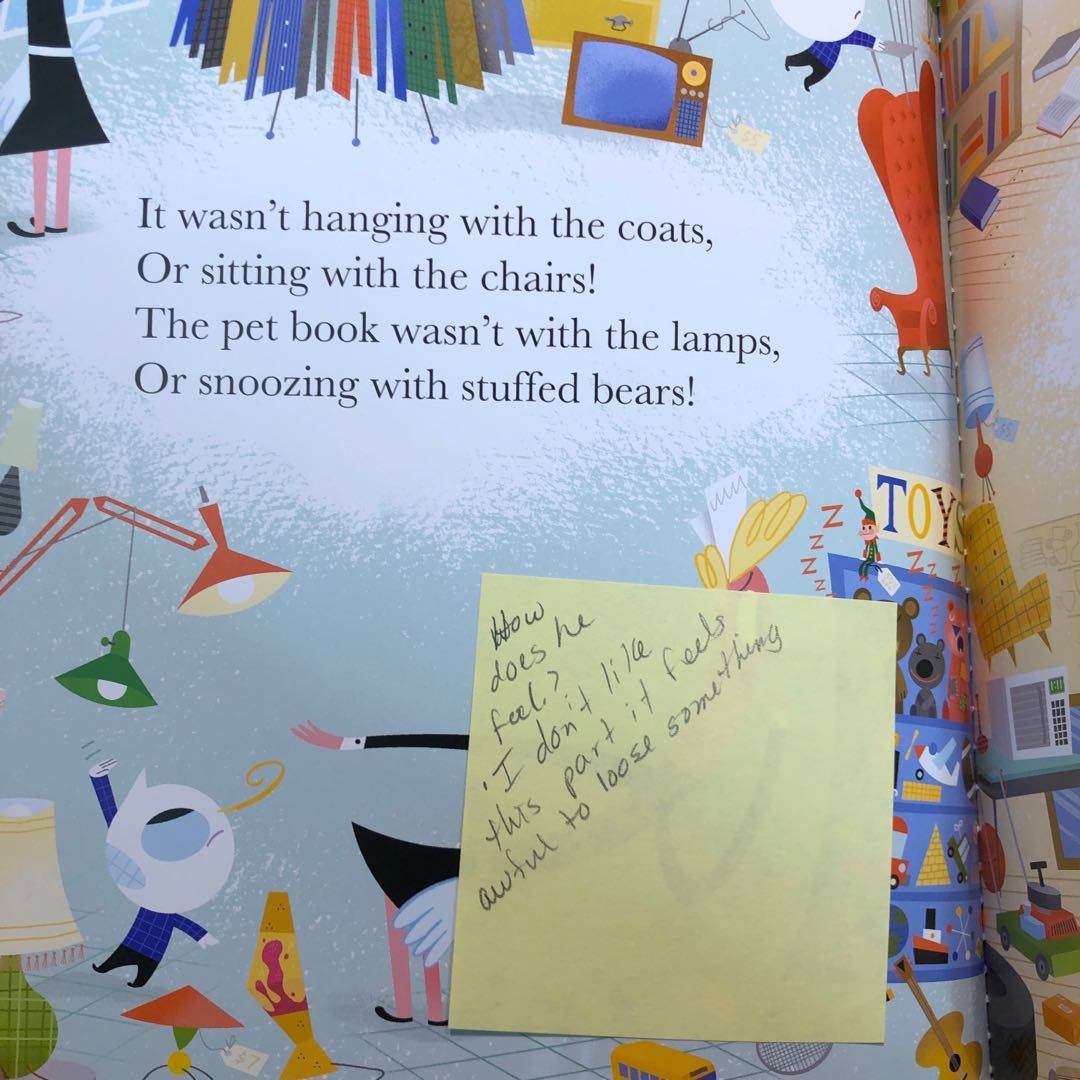 $5
It wasn't hanging with the coats,
Or sitting with the chairs!
The pet book wasn't with the lamps,
Or snoozing with stuffed bears!
$5
TOYS
Z
Z
Z
Z
Z
Z
Z
Z
Z
Z
Z
How
does he
feel?
. I don't like
this part it feels
awful to loose something
$7